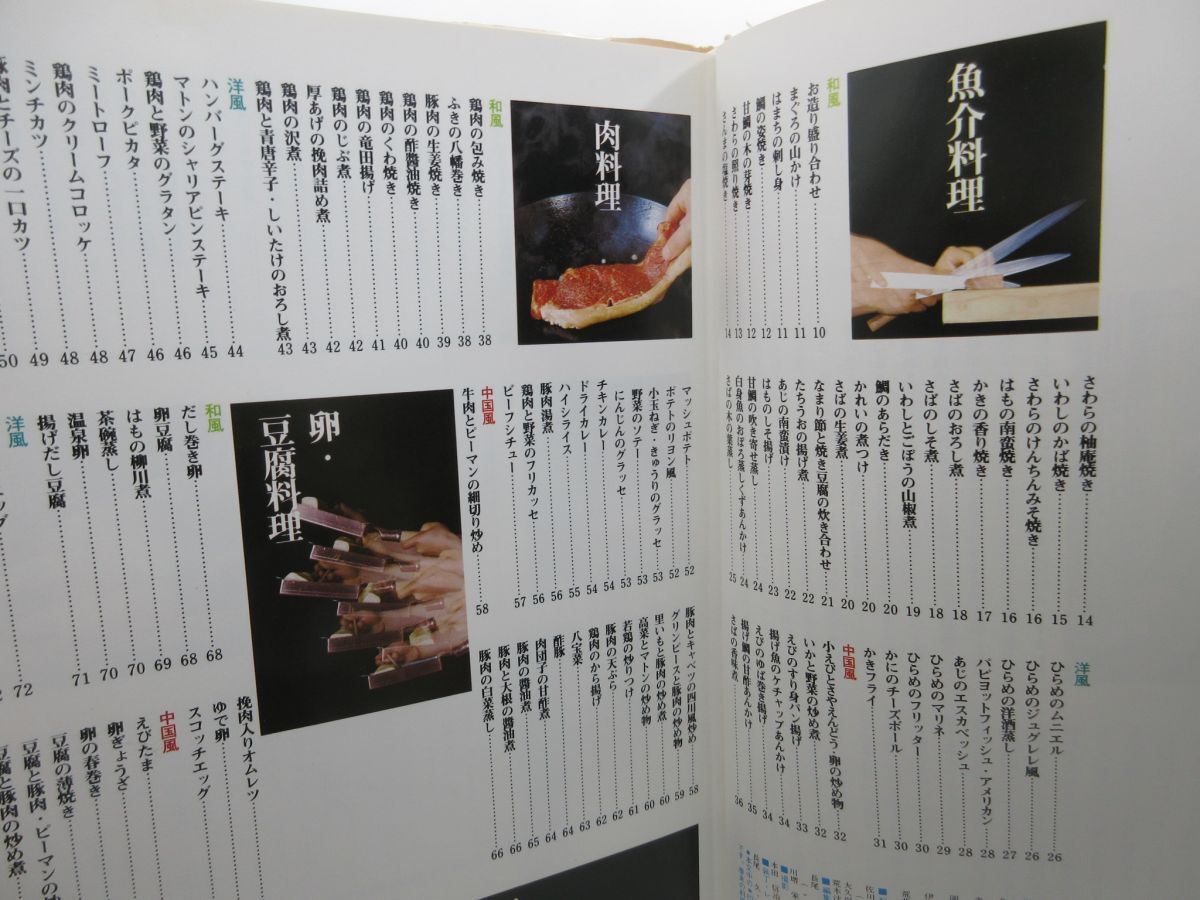 魚介料理
和風
お造り盛り合わせ 10
まぐろの山かけ 11
はまちの刺し身 11
鯛の姿焼き 12
甘鯛の木の芽焼き 12
さわらの照り焼き 13
さんまの塩焼き 14
さわらの柚庵焼き 14
いわしのかば焼き 15
さわらのけんちんみそ焼き 16
はもの南蛮焼き 16
かきの香り焼き 17
さばのおろし煮 18
さばのしそ煮 18
いわしとごぼうの山椒煮 19
鯛のあらだき 20
かれいの煮つけ 20
さばの生姜煮 20
なまり節と焼き豆腐の炊き合わせ 21
たちうおの揚げ煮 22
あじの南蛮漬け 22
はものしそ揚げ 23
甘鯛の吹き寄せ蒸し 24
白身魚のおぼろ蒸しくずあんかけ 24
さばの木の葉蒸し 25
洋風
ひらめのムニエル 26
ひらめのジュグレレ風 26
ひらめの洋酒蒸し 27
パピヨットフィッシュ・アメリカン 28
あじのエスカベッシュ 28
ひらめのマリネ 29
ひらめのフリッター 30
かにのチーズボール 30
かきフライ 31
中国風
小えびとさやえんどう・卵の炒め物 32
いかと野菜の炒め煮 32
えびのすり身パン揚げ 33
揚げ魚のケチャップあんかけ 34
えびのゆば巻き揚げ 34
揚げ鯛の甘酢あんかけ 35
さばの香味煮 36
肉料理
和風
鶏肉の包み焼き 38
ふきの八幡巻き 38
豚肉の生姜焼き 39
鶏肉の酢醬油焼き 40
鶏肉のくわ焼き 40
鶏肉の竜田揚げ 41
鶏肉のじぶ煮 42
厚あげの挽肉詰め煮 42
鶏肉の沢煮 43
鶏肉と青唐辛子・しいたけのおろし煮 43
洋風
ハンバーグステーキ 44
マトンのシャリアピンステーキ 45
鶏肉と野菜のグラタン 46
ポークピカタ 46
ミートローフ 47
鶏肉のクリームコロッケ 48
ミンチカツ 48
豚肉とチーズの一口カツ 49
50
マッシュポテト 52
ポテトのリヨン風 52
小玉ねぎ・きゅうりのグラッセ 53
野菜のソテー 53
にんじんのグラッセ 53
チキンカレー 54
ドライカレー 54
ハイシライス 55
豚肉湯煮 56
鶏肉と野菜のフリカッセ 56
ビーフシチュー 57
中国風
牛肉とピーマンの細切り炒め 58
豚肉とキャベツの四川風炒め 58
グリンピースと豚肉の炒め物 59
里いもと豚肉の炒め煮 60
高菜とマトンの炒め物 60
若鶏の炒りつけ 61
豚肉の天ぷら 62
鶏肉のから揚げ 62
八宝菜 63
酢豚 64
肉団子の甘酢煮 64
豚肉の醬油煮 65
豚肉と大根の醬油煮 66
豚肉の白菜蒸し 66
卵・
豆腐料理
和風
だし巻き卵 68
卵豆腐 68
はもの柳川煮 69
茶碗蒸し 70
温泉卵 70
揚げだし豆腐 71
洋風
72
挽肉入りオムレツ
ゆで卵
スコッチエッグ
中国風
えびたま
卵ぎょうざ
卵の春巻き
豆腐の薄焼き
豆腐と豚肉・ピーマンの
豆腐と豚肉の炒め煮